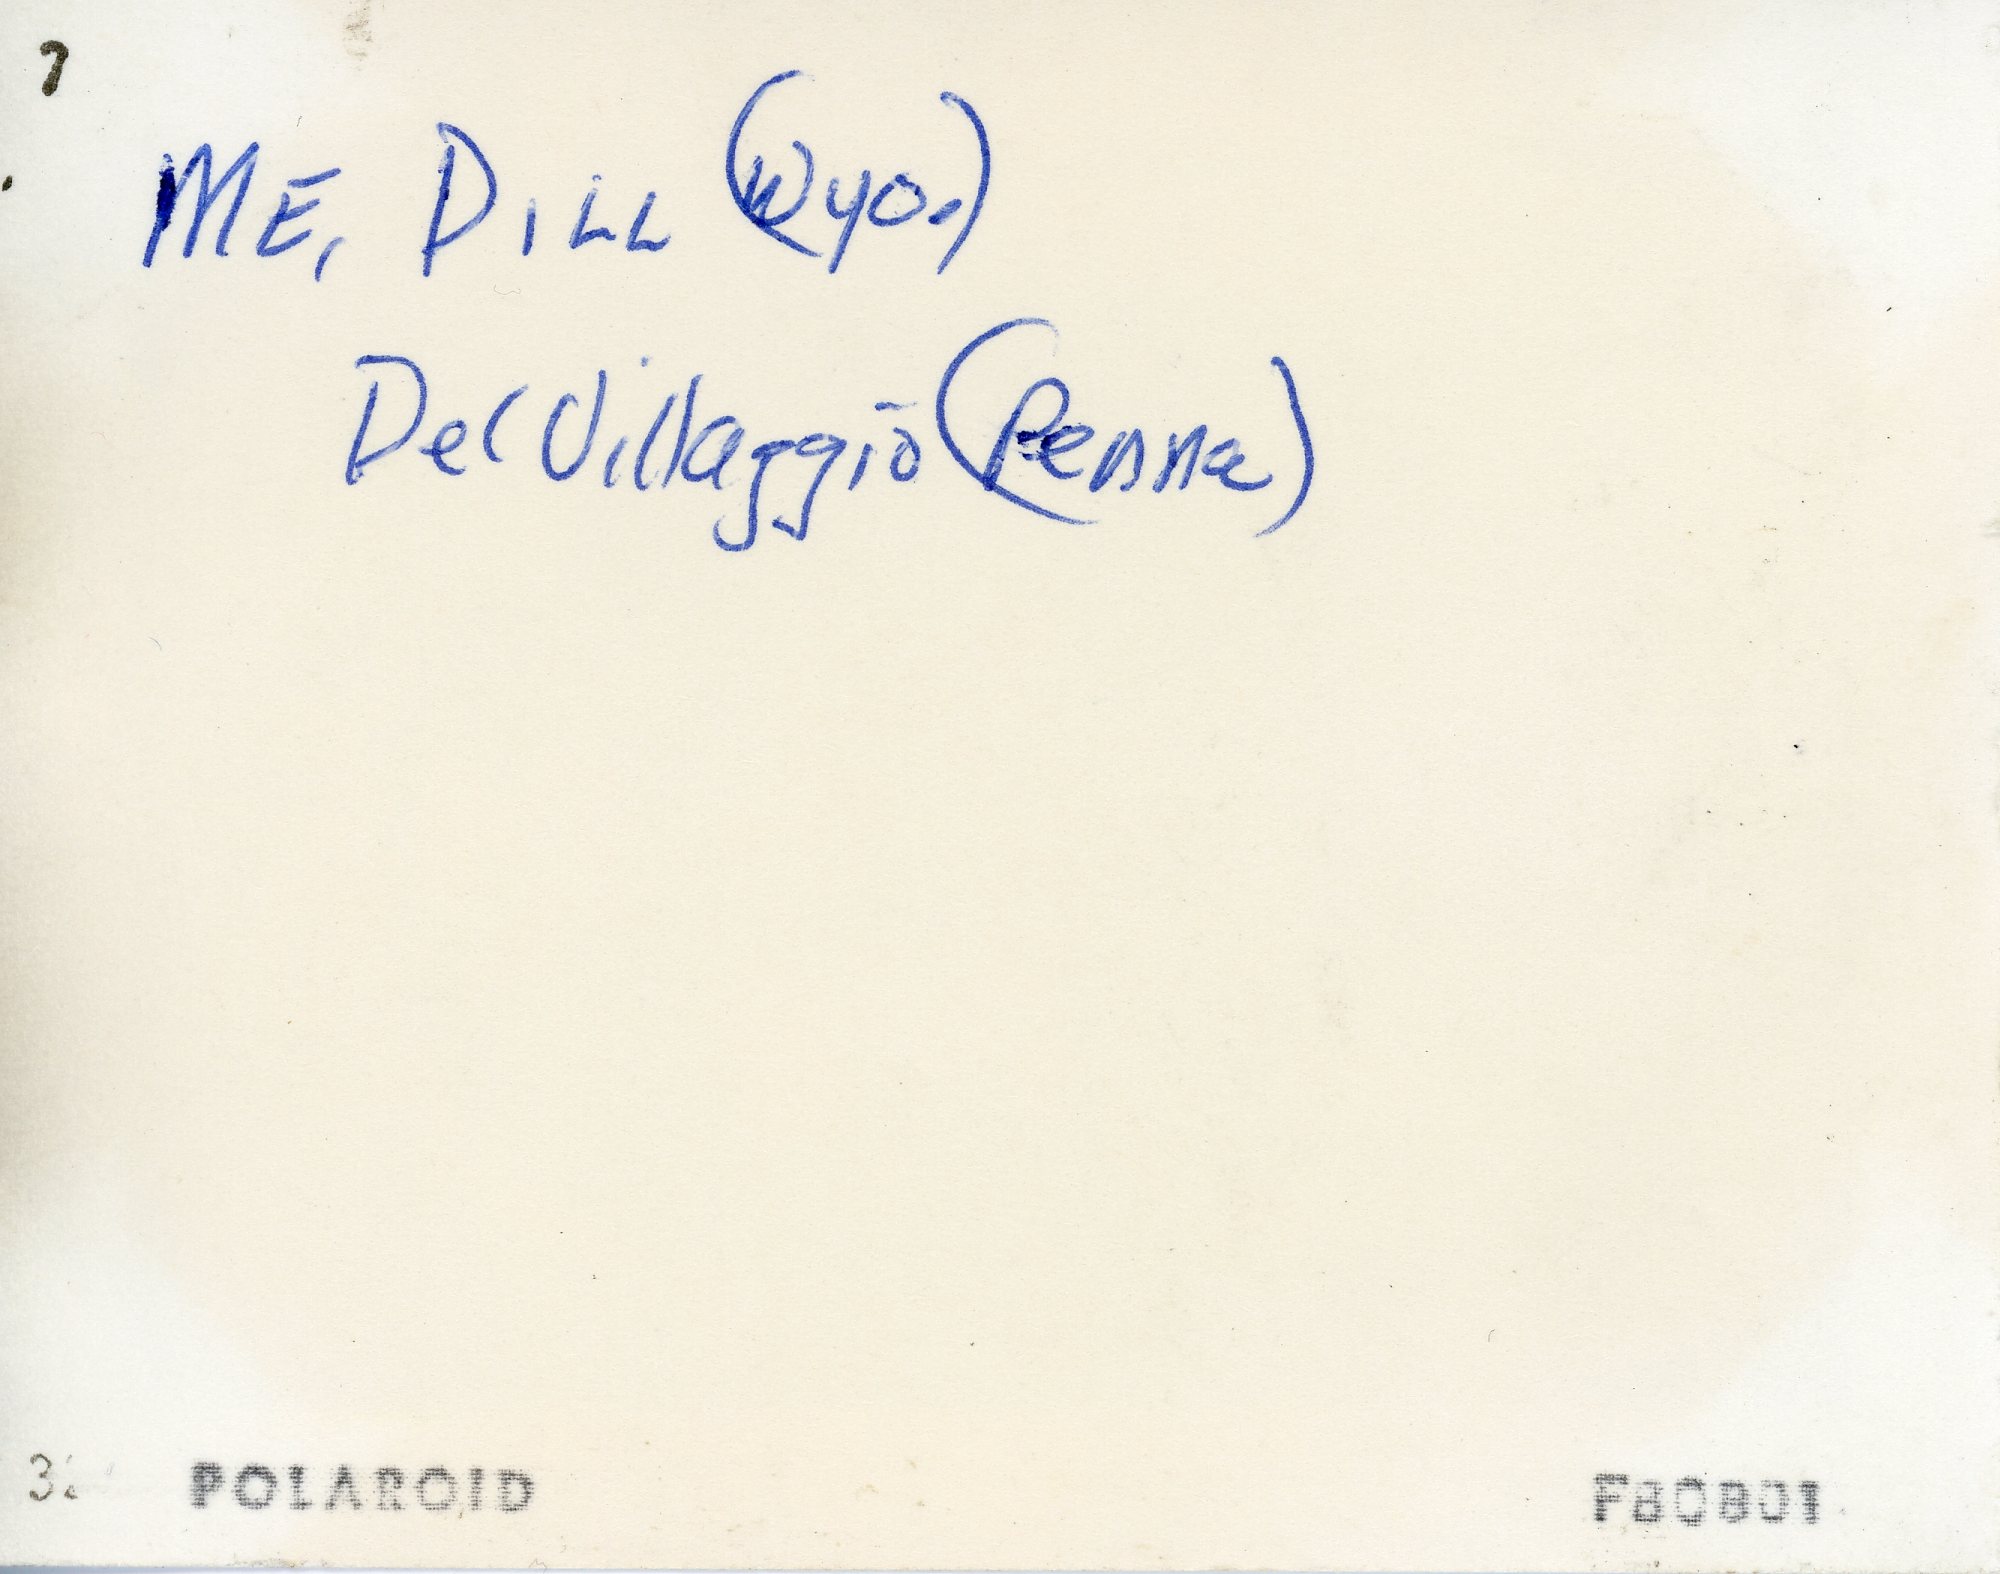 7
ME, DILL (Wyo.)
Del Villaggio (Penna)
POLAROID